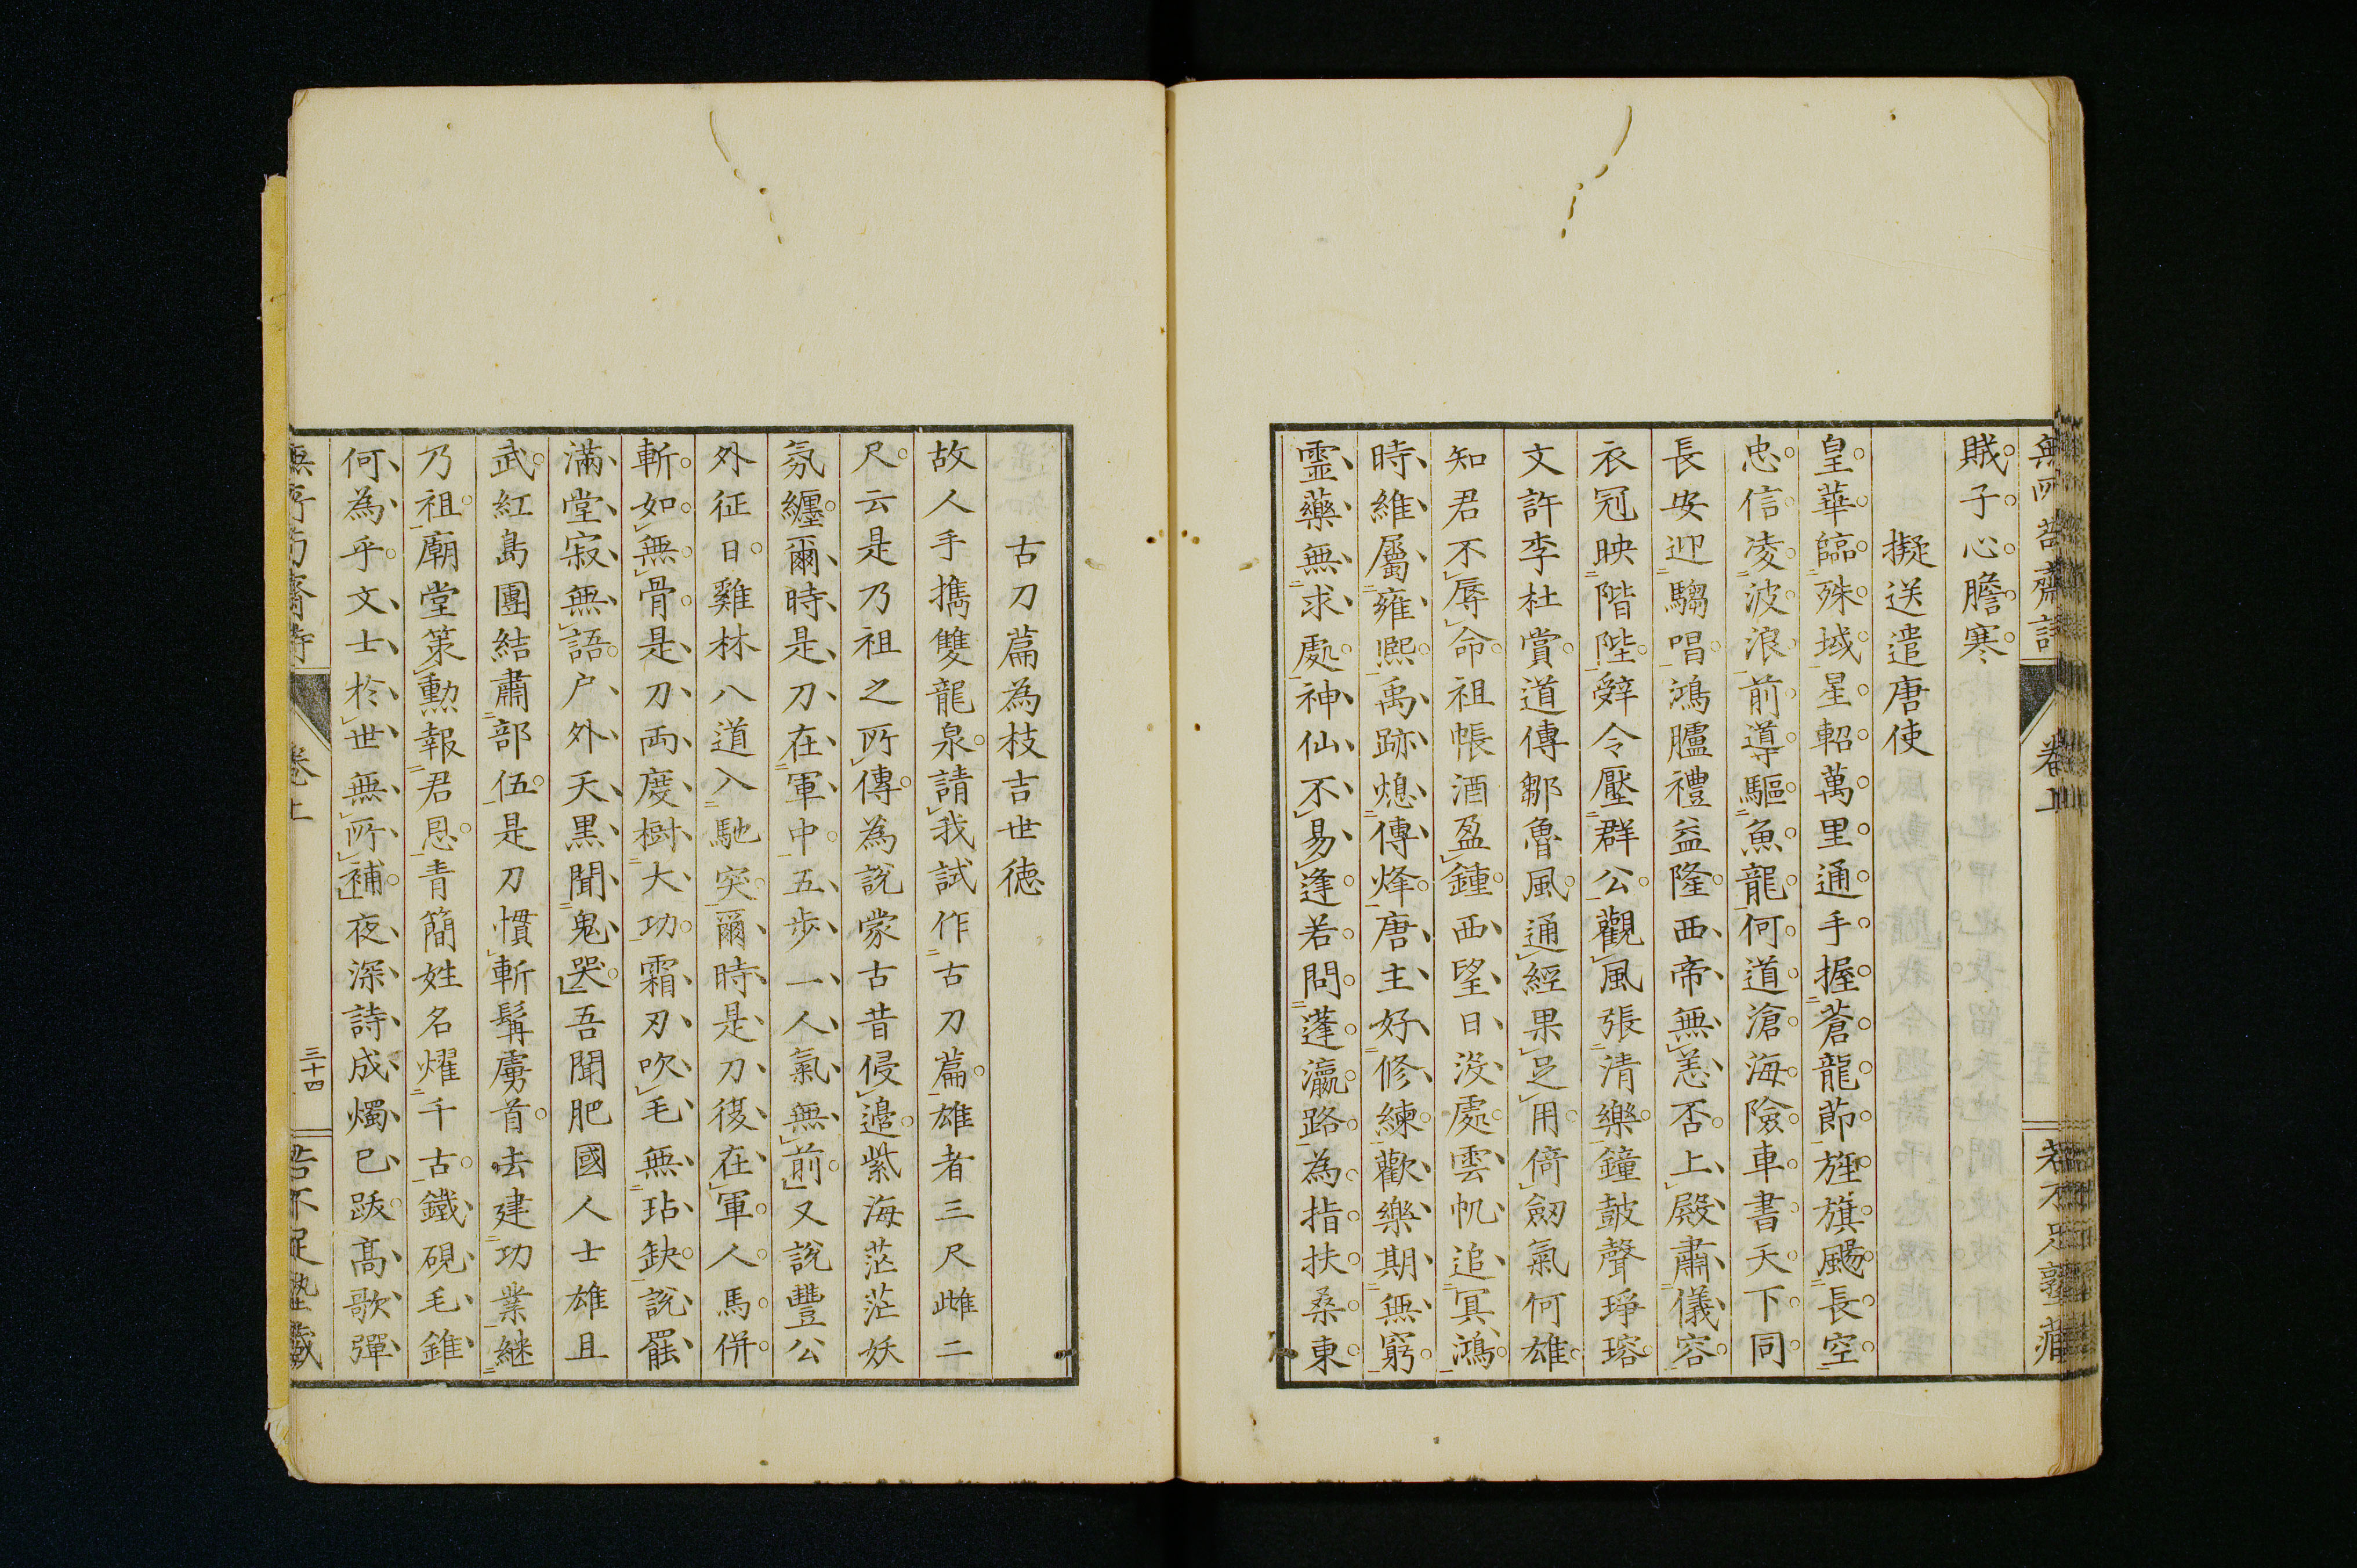 無所苟齋詩 卷上 若不足塾藏
賊子心膽寒
擬送遣唐使
皇華臨殊域星軺萬里通手握蒼龍節旌旗颺長空
忠信凌波浪前導驅魚龍何道滄海險車書天下同
長安迎騶唱鴻臚禮益隆西帝無恙否上殿肅儀容
衣冠映階陛辭令壓群公觀風張清樂鐘鼓聲琤瑢
文許李杜賞道傳鄒魯風通經果足用倚劒氣何雄
知君不辱命祖帳酒盈鍾西望日沒處雲帆追冥鴻
時維屬雍熈禹跡熄傳烽唐主好修練歡樂期無窮
霊藥無求處神仙不易逢若問蓬瀛路為指扶桑東
古刀篇為枝吉世徳
故人手携雙龍泉請我試作古刀篇雄者三尺雌二
尺云是乃祖之所傳為說蒙古昔侵邉紫海茫茫妖
氛纏爾時是刀在軍中五步一人氣無前又說豐公
外征日雞林八道入馳突爾時是刀復在軍人馬併
斬如無骨是刀両度樹大功霜刃吹毛無玷缺說罷
滿堂寂無語戶外天黒聞鬼哭吾聞肥國人士雄且
武紅島團結肅部伍是刀慣斬髯虜首去建功業継
乃祖廟堂策勲報君恩青簡姓名燿千古鐵硯毛錐
何為乎文士於世無所補夜深詩成燭已跋高歌彈
無所苟齋詩 卷上 三十四 若不足塾藏